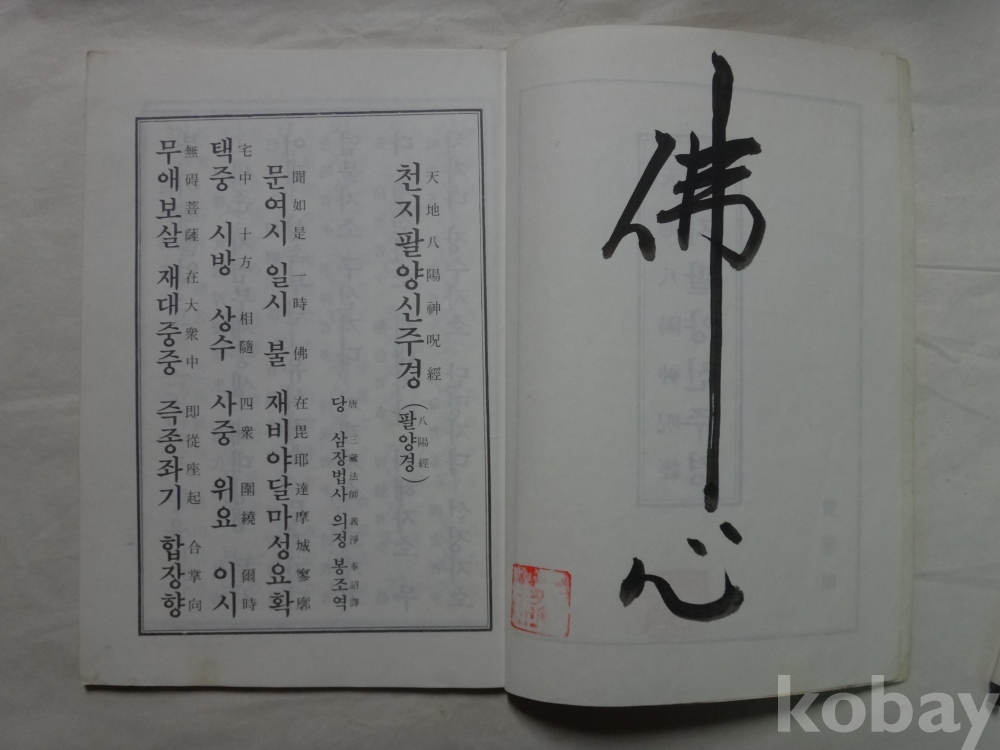 佛心
天地八陽神呪經 八陽經
천지팔양신주경 (팔양경)
唐 三藏法師 義淨 奉詔譯
당 삼장법사 의정 봉조역
聞如是 一時 佛 在毘耶達摩城寥廓
문여시 일시 불 재비야달마성요확
宅中 十方 相隨 四衆 圍繞 爾時
택중 시방 상수 사중 위요 이시
無碍菩薩 在大衆中 即從座起 合掌向
무애보살 재대중중 즉종좌기 합장향
kobay